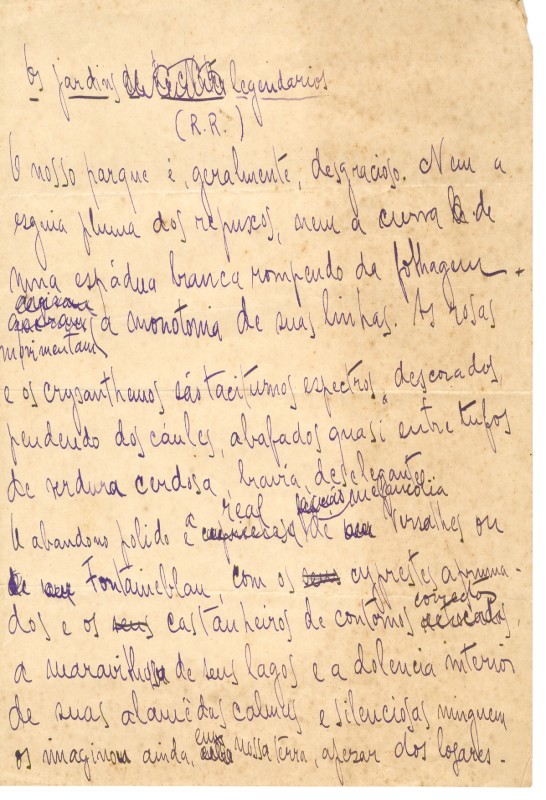 Os jardins legendarios
(R.R.)
O nosso parque é, geralmente, desgracioso. Nem a
esguia pluma dos repuxos, nem a curva de
uma espádua branca rompendo da folhagem
movimentam a monotonia de suas linhas. As rosas
e os crysanthemos são taciturnos espectros, descorados,
pendendo dos cáules, abafados quasi entre tufos
de verdura cerdosa, bravia, deselegante.
O abandono polido e real melancolia de Versalhes ou
Fontainebleau, com os cyprestes apruma-
dos e os castanheiros de contornos correctos,
a maravilhosa de seus lagos e a dolencia interior
de suas alamêdas calmas e silenciosas ninguem
os imaginou ainda, em nossa terra, apezar dos logares.